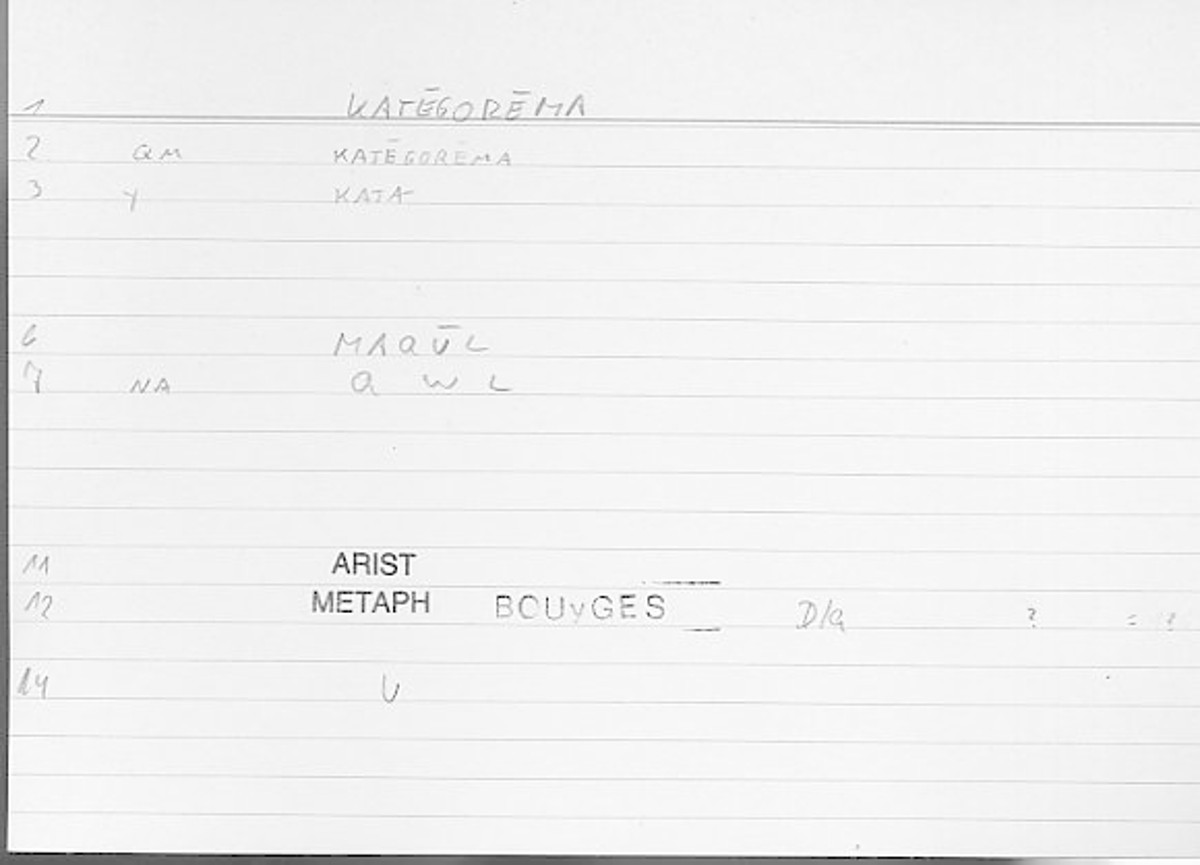 1 KATĒGORĒMA
2 QM KATĒGORĒMA
3 Y KATA
6 MAQŪL
7 NA Q W L
11 ARIST
12 METAPH BOUyGES D/G ? = ?
14 U